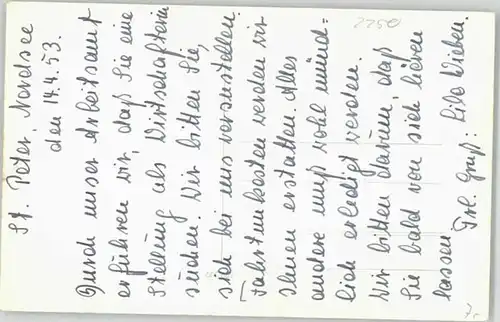 St. Peter, Nordsee
den 14.4.53.
Durch unser Arbeitsamt
erfuhren wir, daß Sie eine
Stellung als Wirtschafterin
suchen. Wir bitten Sie,
sich bei uns vorzustellen.
Fahrtunkosten werden wir
Ihnen erstatten. Alles
andere muß wohl münd=
lich erledigt werden.
Wir bitten darum, daß
Sie bald von sich hören
lassen. Frl. Gruß: Lilo Wieben.
2250
7,-